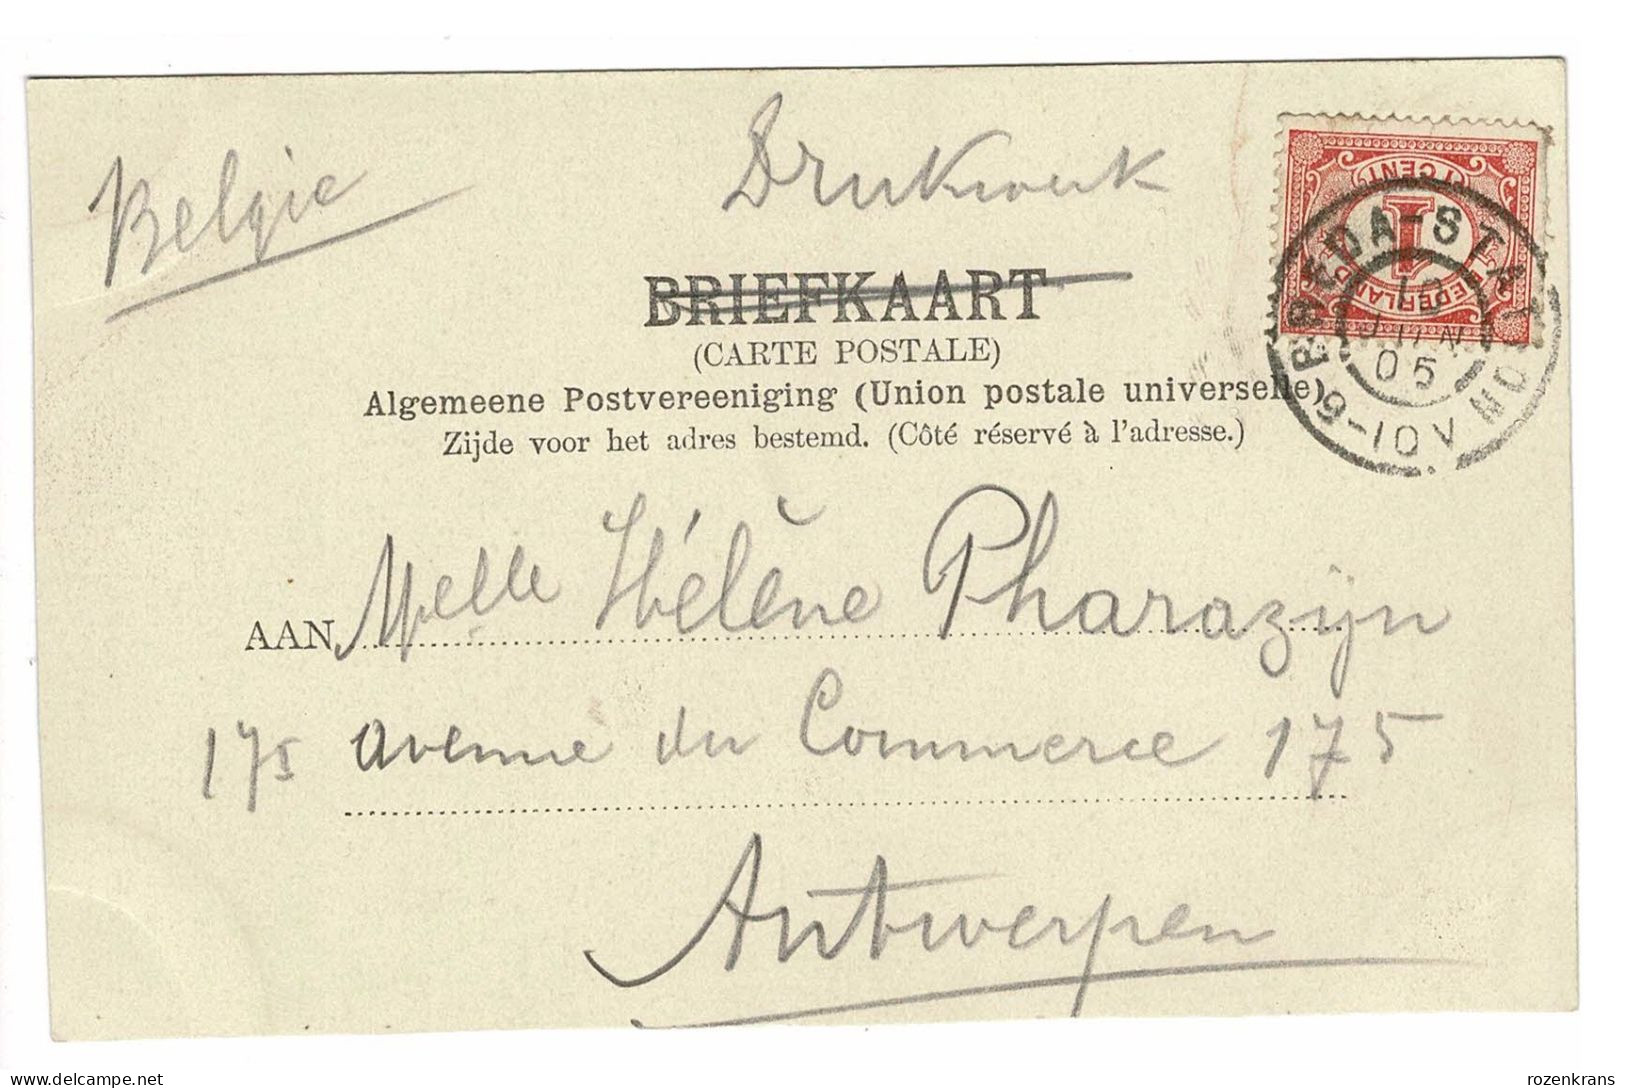 België
Drukwerk
1 CENT
1
NEDERLAND
BREDA-STATION
10
JUN
05
6-10V
BRIEFKAART
(CARTE POSTALE)
Algemeene Postvereeniging (Union postale universelle)
Zijde voor het adres bestemd. (Côté réservé à l'adresse.)
AAN Melle Hélène Pharazijn
175 avenue du Commerce 175
Antwerpen
delcampe.net
rozenkrans